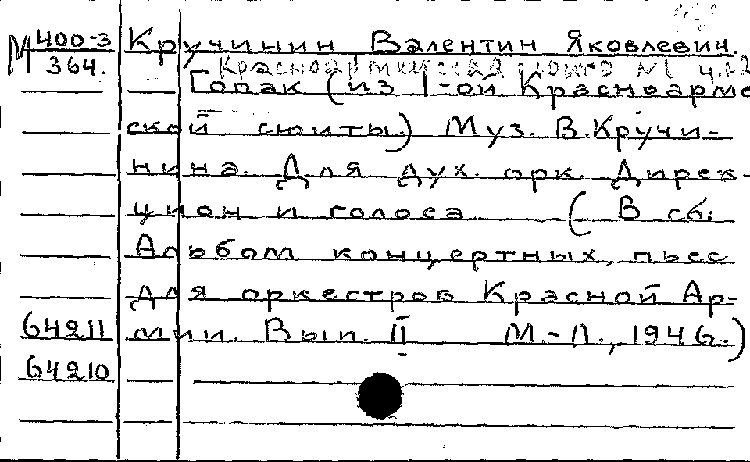 М 400-3
364.
Кручинин Валентин Яковлевич.
Гопак (из I-ой Красноарме
ской сюиты) Муз. В. Кручи-
нина. Для дух. орк. Дирек-
цион и голоса (В сб:
Альбом концертных пьес
для оркестров Красной Ар-
64211 мии. Вып. II М.-Л., 1946.)
64210